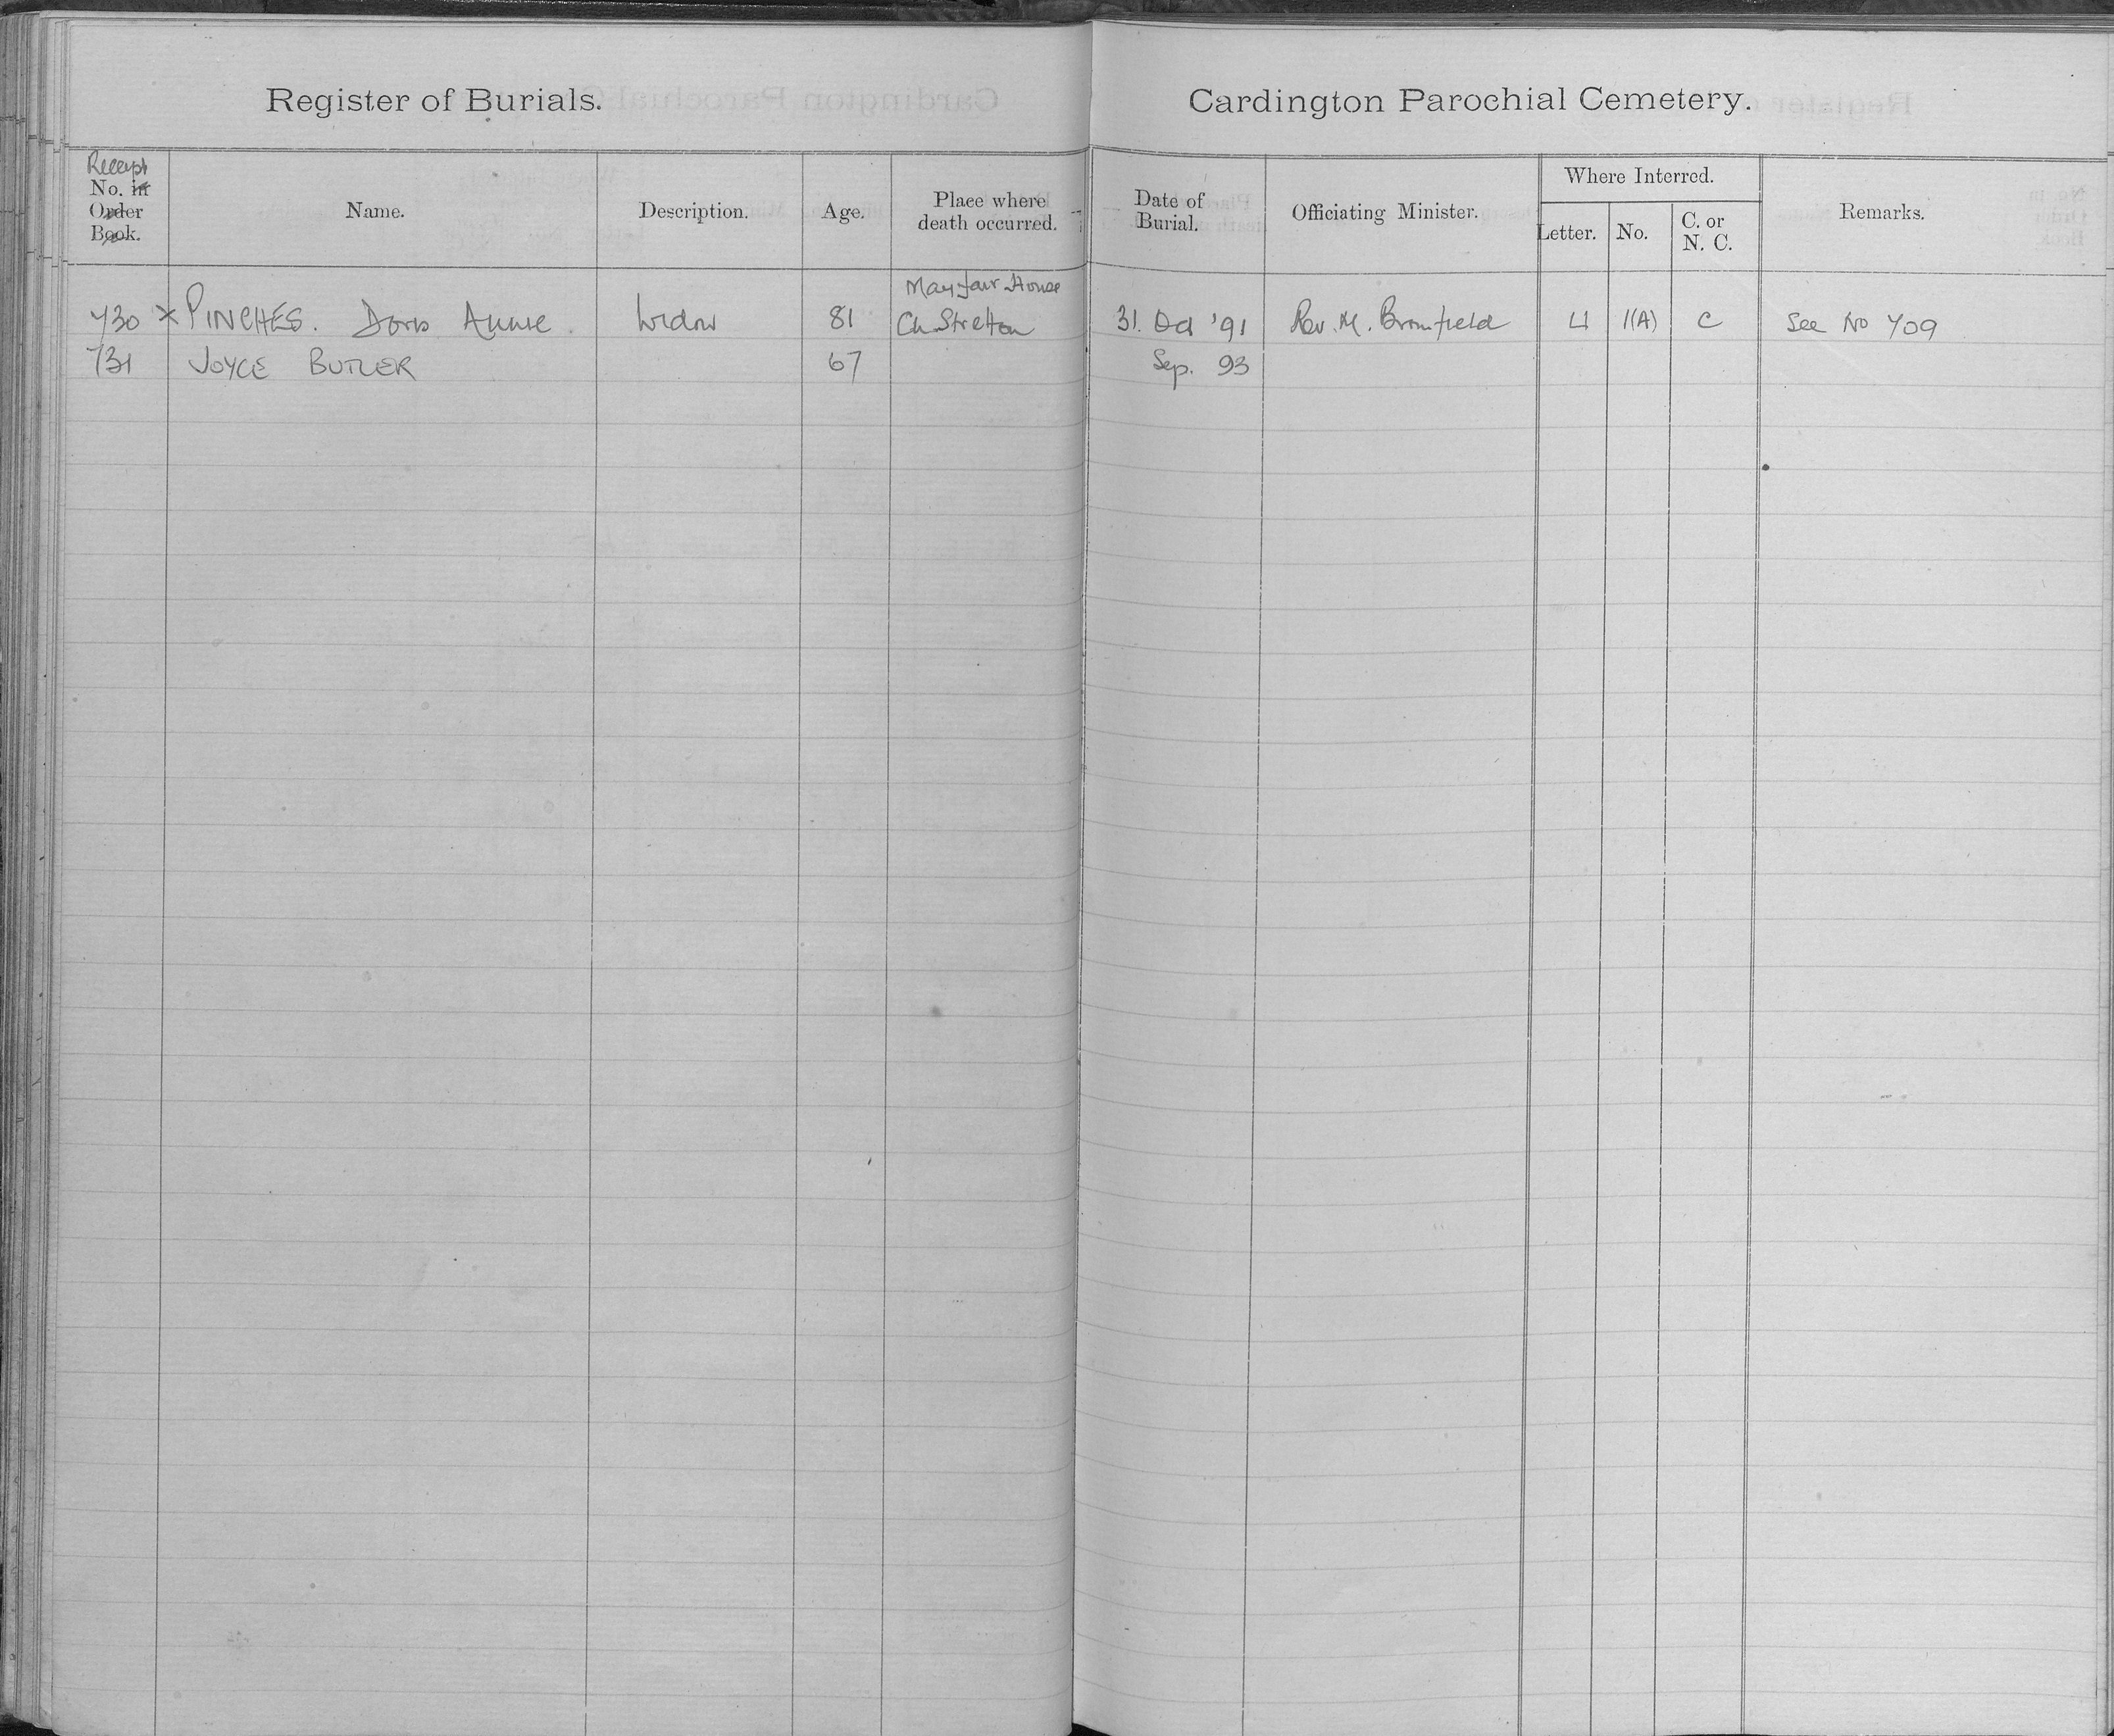 Register of Burials. Cardington Parochial Cemetery.
Receipt
No. in Order Book. Name. Description. Age. Place where death occurred. Date of Burial. Officiating Minister. Where Interred. Letter. No. C. or N. C. Remarks.
Mayfair House
730 x PINCHES. Doris Annie. Widow 81 Ch Stretton 31. Oct '91 Rev. M. Bromfield 1(A) C See No 709
731 JOYCE BUTLER 67 Sep. 93